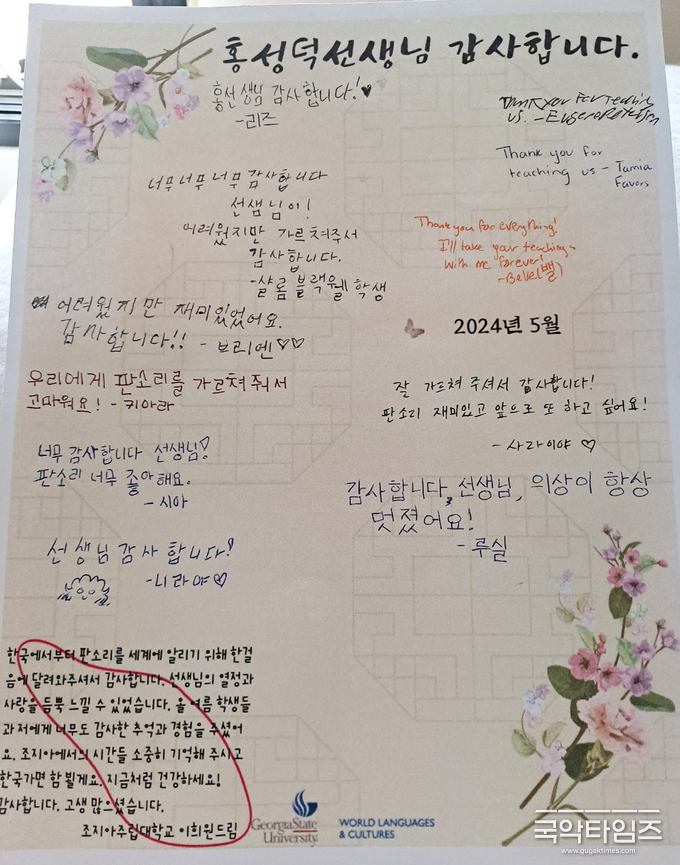 홍성덕선생님 감사합니다.
홍선생님 감사합니다!♥
-리즈
Thank you for teaching
us. -
Thank you for
teaching us - Tamia
Favors
너무너무너무 감사합니다
선생님이!
어려웠지만 가르쳐주서
감사합니다.
-샬롬블랙웰 학생
Thank you for everything!
I'll take your teachings
with me forever!
-Belle(벨)
2024년 5월
어려웠지만 재미있었어요.
감사합니다!! - 브리엔♡♡
우리에게 판소리를 가르쳐줘서
고마워요! - 키아라
잘 가르쳐 주셔서 감사합니다!
판소리 재미있고 앞으로 또 하고 싶어요!
- 사라이야 ♡
너무 감사합니다 선생님!
판소리 너무 좋아해요.
- 시아
감사합니다, 선생님, 의상이 항상
멋졌어요!
- 루실
선생님 감사합니다!
-니라야♡
한국에서부터 판소리를 세계에 알리기 위해 한걸
음에 달려와주셔서 감사합니다. 선생님의 열정과
사랑을 듬뿍 느낄 수 있었습니다. 올 여름 학생들
과 저에게 너무도 감사한 추억과 경험을 주셨어
요. 조지아에서의 시간들 소중히 기억해 주시고
한국가면 함 뵐게요. 지금처럼 건강하세요!
감사합니다. 고생 많으셨습니다.
조지아주립대학교 이희원드림
GeorgiaState
University
WORLD LANGUAGES
& CULTURES
국악타임즈
www.gugaktimes.com